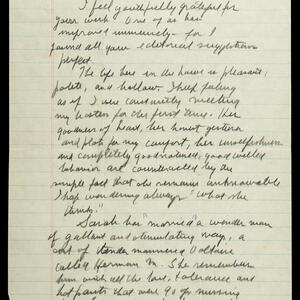 I feel youthfully grateful for
your work. One of us has
improved immensely - for I
found all your editorial suggestions
perfect.
The life here in the house is pleasant,
polite, and hollow. I keep feeling
as if I were constantly meeting
my hostess for the first time. Her
goodness of heart, her honest gestures
and plots for my comfort, her unselfishness
and completely goodnatured, good willed
behavior are counteracted by the
simple fact that she remains unknowable
I keep wondering always "what she
thinks."
Sarah has "married" a wonder man
of gallant and stimulating ways, a
sort of mannered Voltaire
called Herman M. She remembers
him with all the love, tolerance and
hot pants that were 90 of nursing